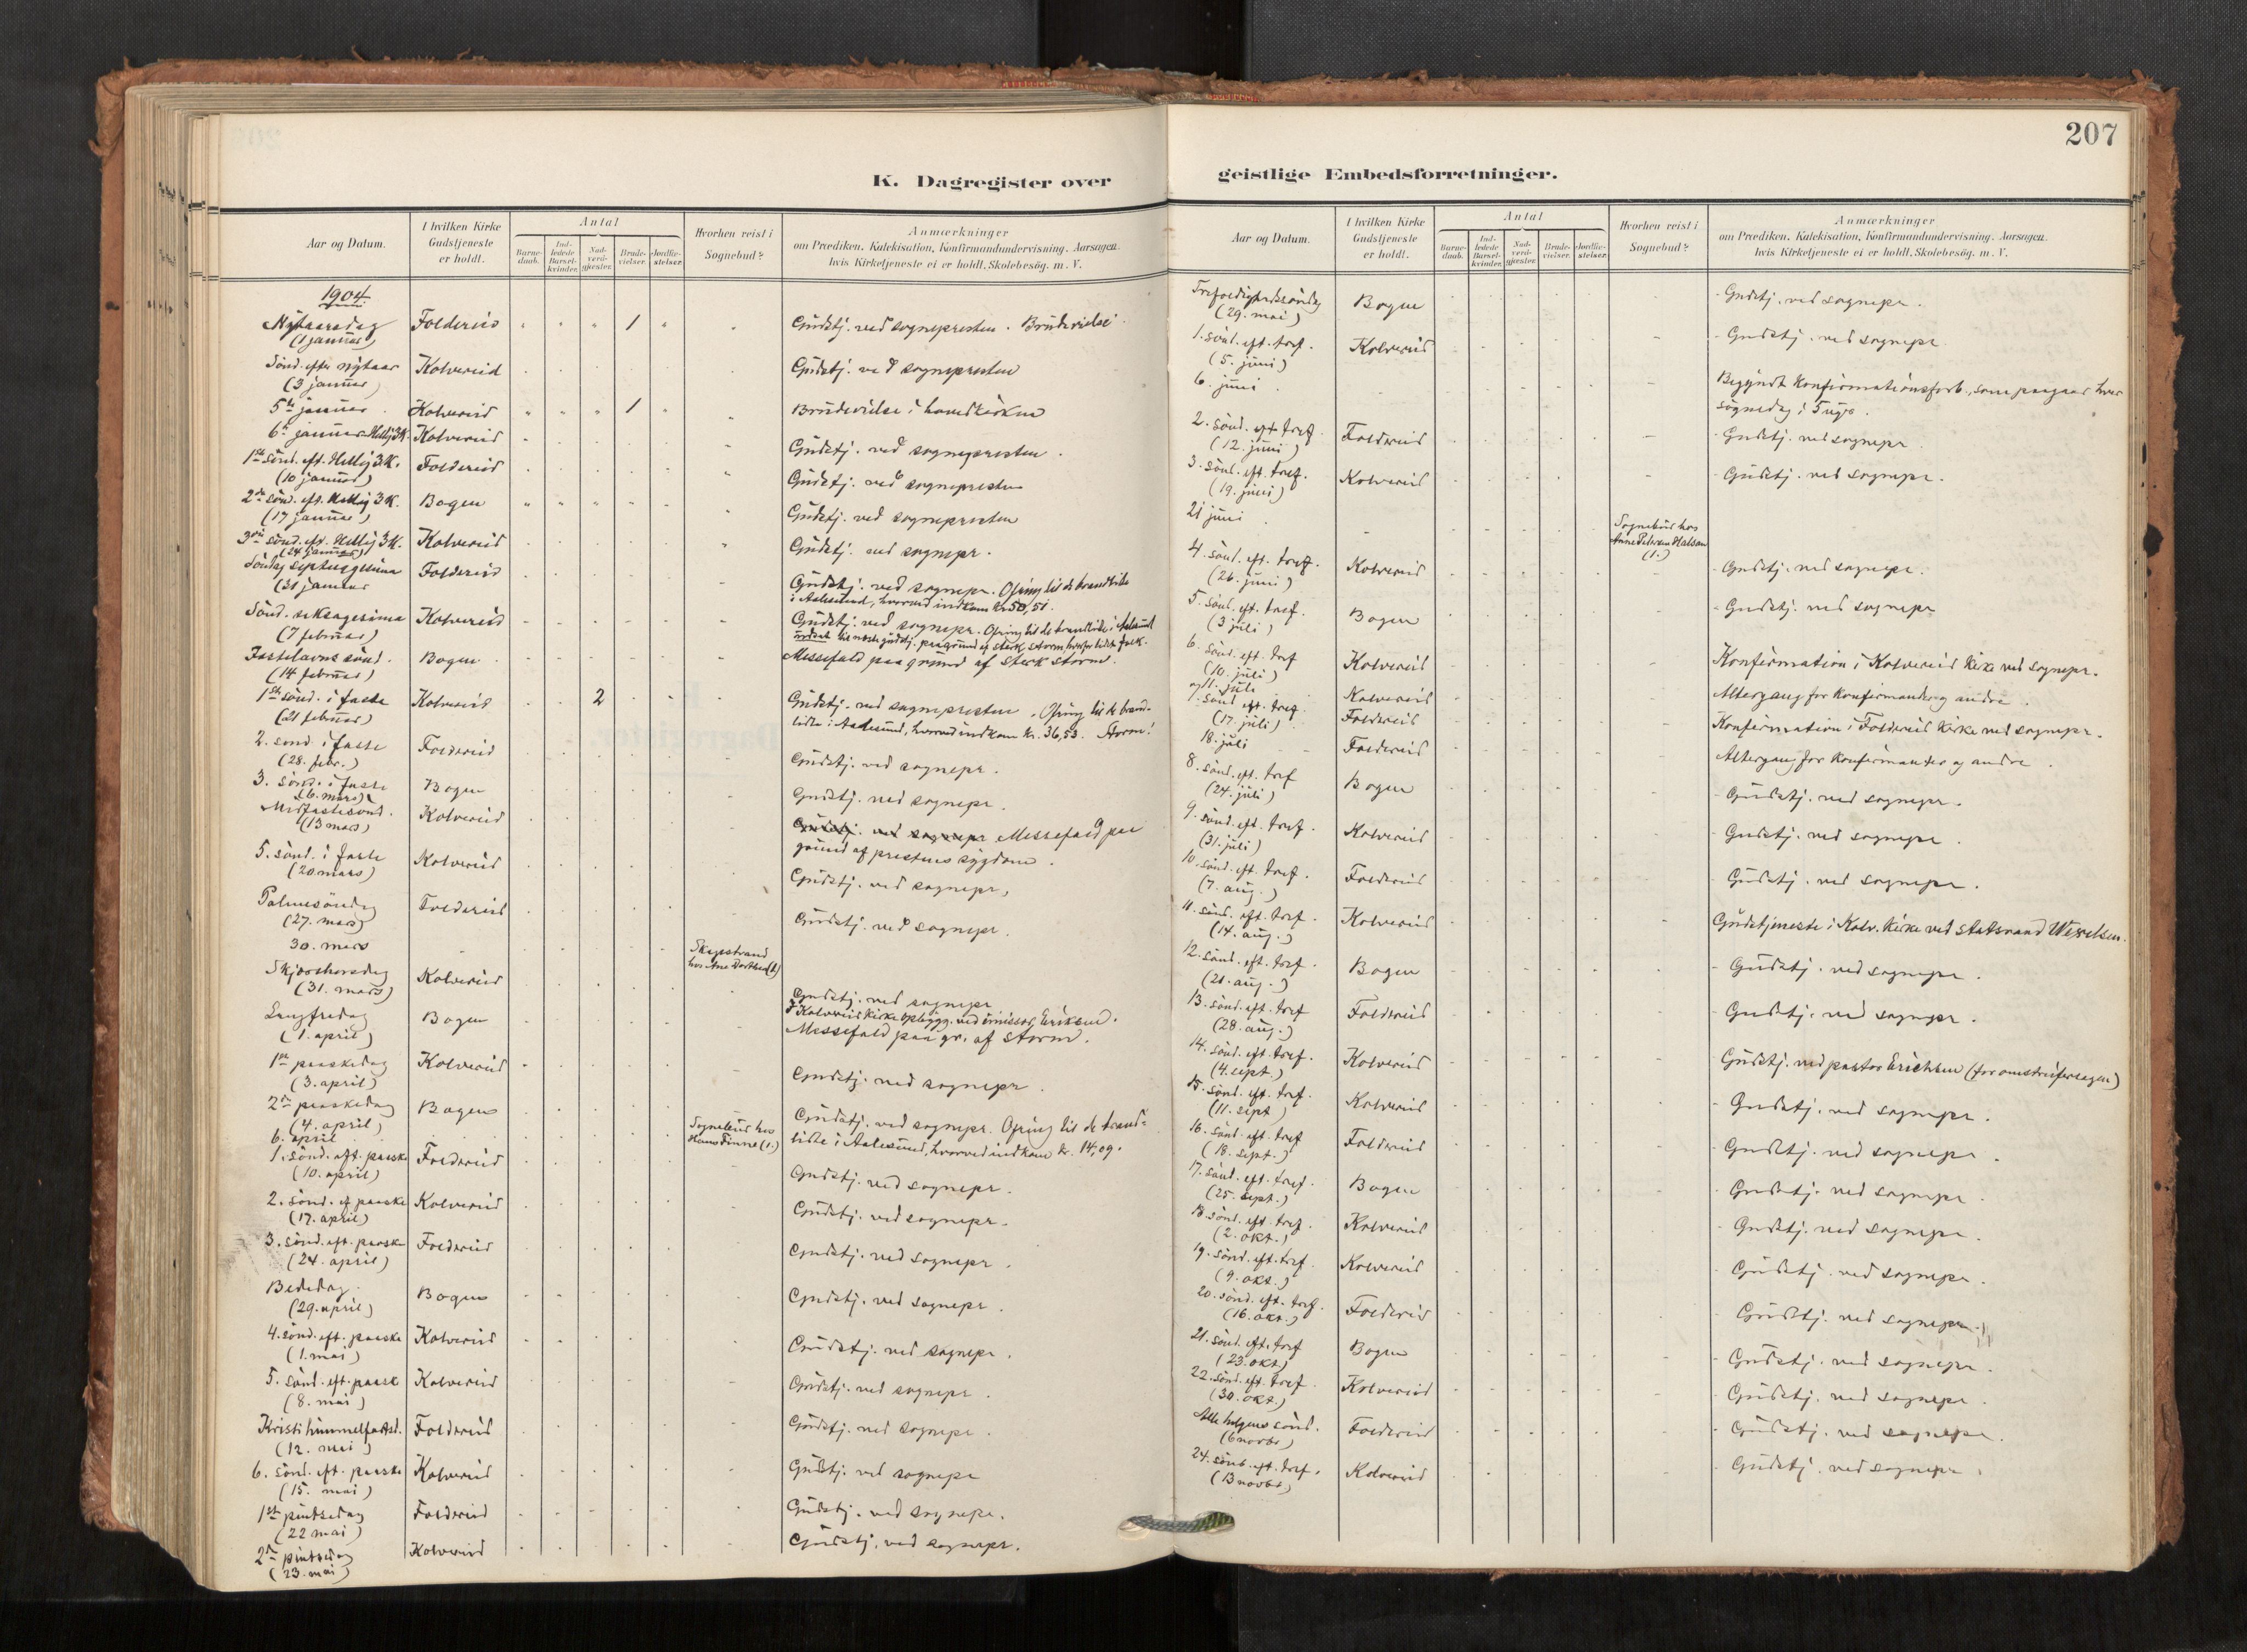 K. Dagregister over
Aar og Datum.
I hvilken Kirke Gudstjeneste er holdt.
Antal
Barnedaab.
Indledede Barselkvinder.
Nadverdgjæster.
Brudevielser.
Jordfæstelser.
Hvorhen reist i Sognebud?
Anmærkninger
om Prædiken, Katekisation, Konfirmandundervisning. Aarsagen.
hvis Kirketjeneste ei er holdt, Skolebesög. m. V.
1904
Nytaarsdag (1 januar) Foldereid 1 Gudstj. ved sognepresten. Brudevielse
Sönd. efter nytaar (3 januar) Kolvereid Gudstj. ved sognepresten
5te januar Kolvereid 1 Brudevielse i hovedkirken
6te januar Hellig 3 K. Kolvereid Gudstj. ved sognepresten.
1ste Sönd. eft. Hellig 3 K. (10 januar) Foldereid Gudstj. ved sognepresten
2den sönd. eft. Hellig 3 K. (17 januar) Bogen Gudstj. ved sognepresten
3die sönd. eft. Hellig 3 K. (24 januar) Kolvereid Gudstj. ved sognepr.
Söndag Septuagesima (31 januar Foldereid Gudstj. ved sognepr. Ofring til de brandlidte
i Aalesund, hvorved indkom kr. 50,51.
Sönd. seksagesima (7 februar) Kolvereid Gudstj. ved sognepr. Ofring til de brandlidte i Aalesund
udsat til næste gudstj. paa grund af sterk storm, hvorfor lidet folk.
Fastelavns sönd. (14 februar) Bogen Messefald paa grund af sterk storm.
1ste sönd. i faste (21 februar) Kolvereid 2 Gudstj. ved sognepresten. Ofring til de brand-
lidte i Aalesund, hvorved indkom kr. 36,53. Storm!
2. sönd. i faste (28. febr.) Foldereid Gudstj. ved sognepr.
3. sönd. i faste (6. mars) Bogen Gudstj. ved sognepr.
Midfastesönd. (13 mars) Kolvereid Gudstj. ved sognepr Messefald paa
grund af prestens sygdom.
5. sönd. i faste (20 mars) Kolvereid Gudstj. ved sognepr.
Palmesöndag (27. mars) Foldereid Gudstj. ved sognepr.
30. mars Skagestrand
hos Ane (1)
Skjærthorsdag (31. mars) Kolvereid Gudstj. ved sognepr
Langfredag (1. april) Bogen I Kolvereid Kirke opbygg. ved emissær Eriksen.
Messefald paa gr. af storm.
1ste paaskedag (3. april) Kolvereid Gudstj. ved sognepr.
2den paaskedag (4. april) Bogen Gudstj. ved sognepr. Ofring til de brand-
lidte i Aalesund, hvorved indkom kr. 14,09.
6. april Sognebud hos
Hans Finne (1.)
1. sönd. eft. paaske (10. april) Foldereid Gudstj. ved sognepr.
2. sönd. ef paaske (17. april) Kolvereid Gudstj. ved sognepr.
3. sönd. eft. paaske (24. april) Foldereid Gudstj. ved sognepr.
Bededag (29. april) Bogen Gudstj. ved sognepr.
4. sönd. eft. paaske (1. mai) Kolvereid Gudstj. ved sognepr.
5. sönd. eft. paaske (8. mai) Kolvereid Gudstj. ved sognepr.
Kristi himmelfartsd. (12. mai) Foldereid Gudstj. ved sognepr.
6. sönd. eft. paaske (15. mai) Kolvereid Gudstj. ved sognepr
1ste pintsedag (22 mai) Foldereid Gudstj. ved sognepr.
2den pintsedag (23. mai) Kolvereid Gudstj. ved sognepr.
207
geistlige Embedsforretninger.
Aar og Datum.
I hvilken Kirke Gudstjeneste er holdt.
Antal
Barnedaab.
Indledede Barselkvinder.
Nadverdgjæster.
Brudevielser.
Jordfæstelser.
Hvorhen reist i Sognebud?
Anmærkninger
om Prædiken, Katekisation, Konfirmandundervisning. Aarsagen.
hvis Kirketjeneste ei er holdt, Skolebesög. m. V.
Trefoldighedssöndag (29. mai) Bogen Gudstj. ved sognepr.
1. sönd. eft. tref. (5. juni) Kolvereid Gudstj. ved sognepr
6. juni Begyndt Konfirmationsforb., som paagaar hver
sögnedag i 5 uger.
2. sönd. eft tref. (12. juni) Foldereid Gudstj. ved sognepr.
3. sönd. eft. tref. (19. juni) Kolvereid Gudstj. ved sognepr.
21 juni Sognebud hos
Anne Petersen
(1.)
4. sönd. eft. tref. (26. juni) Kolvereid Gudstj. ved sognepr.
5. sönd. eft. tref. (3 juli) Bogen Gudstj. ved sognepr
6. sönd. eft. tref (10. juli) Kolvereid Konfirmation i Kolvereid Kirke ved sognepr.
og 11. juli Kolvereid Altergang for Konfirmander og andre.
7. sönd eft. tref. (17. juli) Foldereid Konfirmation i Foldereid Kirke ved sognepr.
18. juli Foldereid Altergang for Konfirmanter og andre.
8. sönd. eft. tref (24. juli) Bogen Gudstj. ved sognepr.
9. sönd. eft. tref. (31. juli) Kolvereid Gudstj. ved sognepr.
10. sönd. eft. tref. (7. aug.) Foldereid Gudstj. ved sognepr.
11. sönd. eft. tref. (14. aug.) Kolvereid Gudstjeneste i Kolv. Kirke ved statsraad Wexelsen.
12. sönd. eft. tref. (21. aug.) Bogen Gudstj. ved sognepr.
13. sönd. eft. tref (28. aug.) Foldereid Gudstj. ved sognepr.
14. sönd. eft. tref. (4. sept.) Kolvereid Gudstj. ved pastor Erichsen (for omstreifersagen)
15. sönd. eft. tref. (11. sept) Kolvereid Gudstj. ved sognepr.
16. sönd. eft. tref (18. sept.) Foldereid Gudstj. ved sognepr.
17. sönd. eft. tref. (25. sept.) Bogen Gudstj. ved sognepr.
18. sönd. eft. tref. (2. okt.) Kolvereid Gudstj. ved sognepr.
19. sönd. eft. tref. (9. okt.) Kolvereid Gudstj. ved sognepr.
20. sönd. eft. tref. (16. okt.) Foldereid Gudstj. ved sognepr.
21. sönd. eft. tref (23. okt) Bogen Gudstj. ved sognepr.
22. sönd. eft. tref. (30. okt.) Kolvereid Gudstj. ved sognepr.
Alle helgens sönd. (6 novbr) Foldereid Gudstj. ved sognepr.
24. sönd. eft. tref. (13 novbr) Kolvereid Gudstj. ved sognepr.